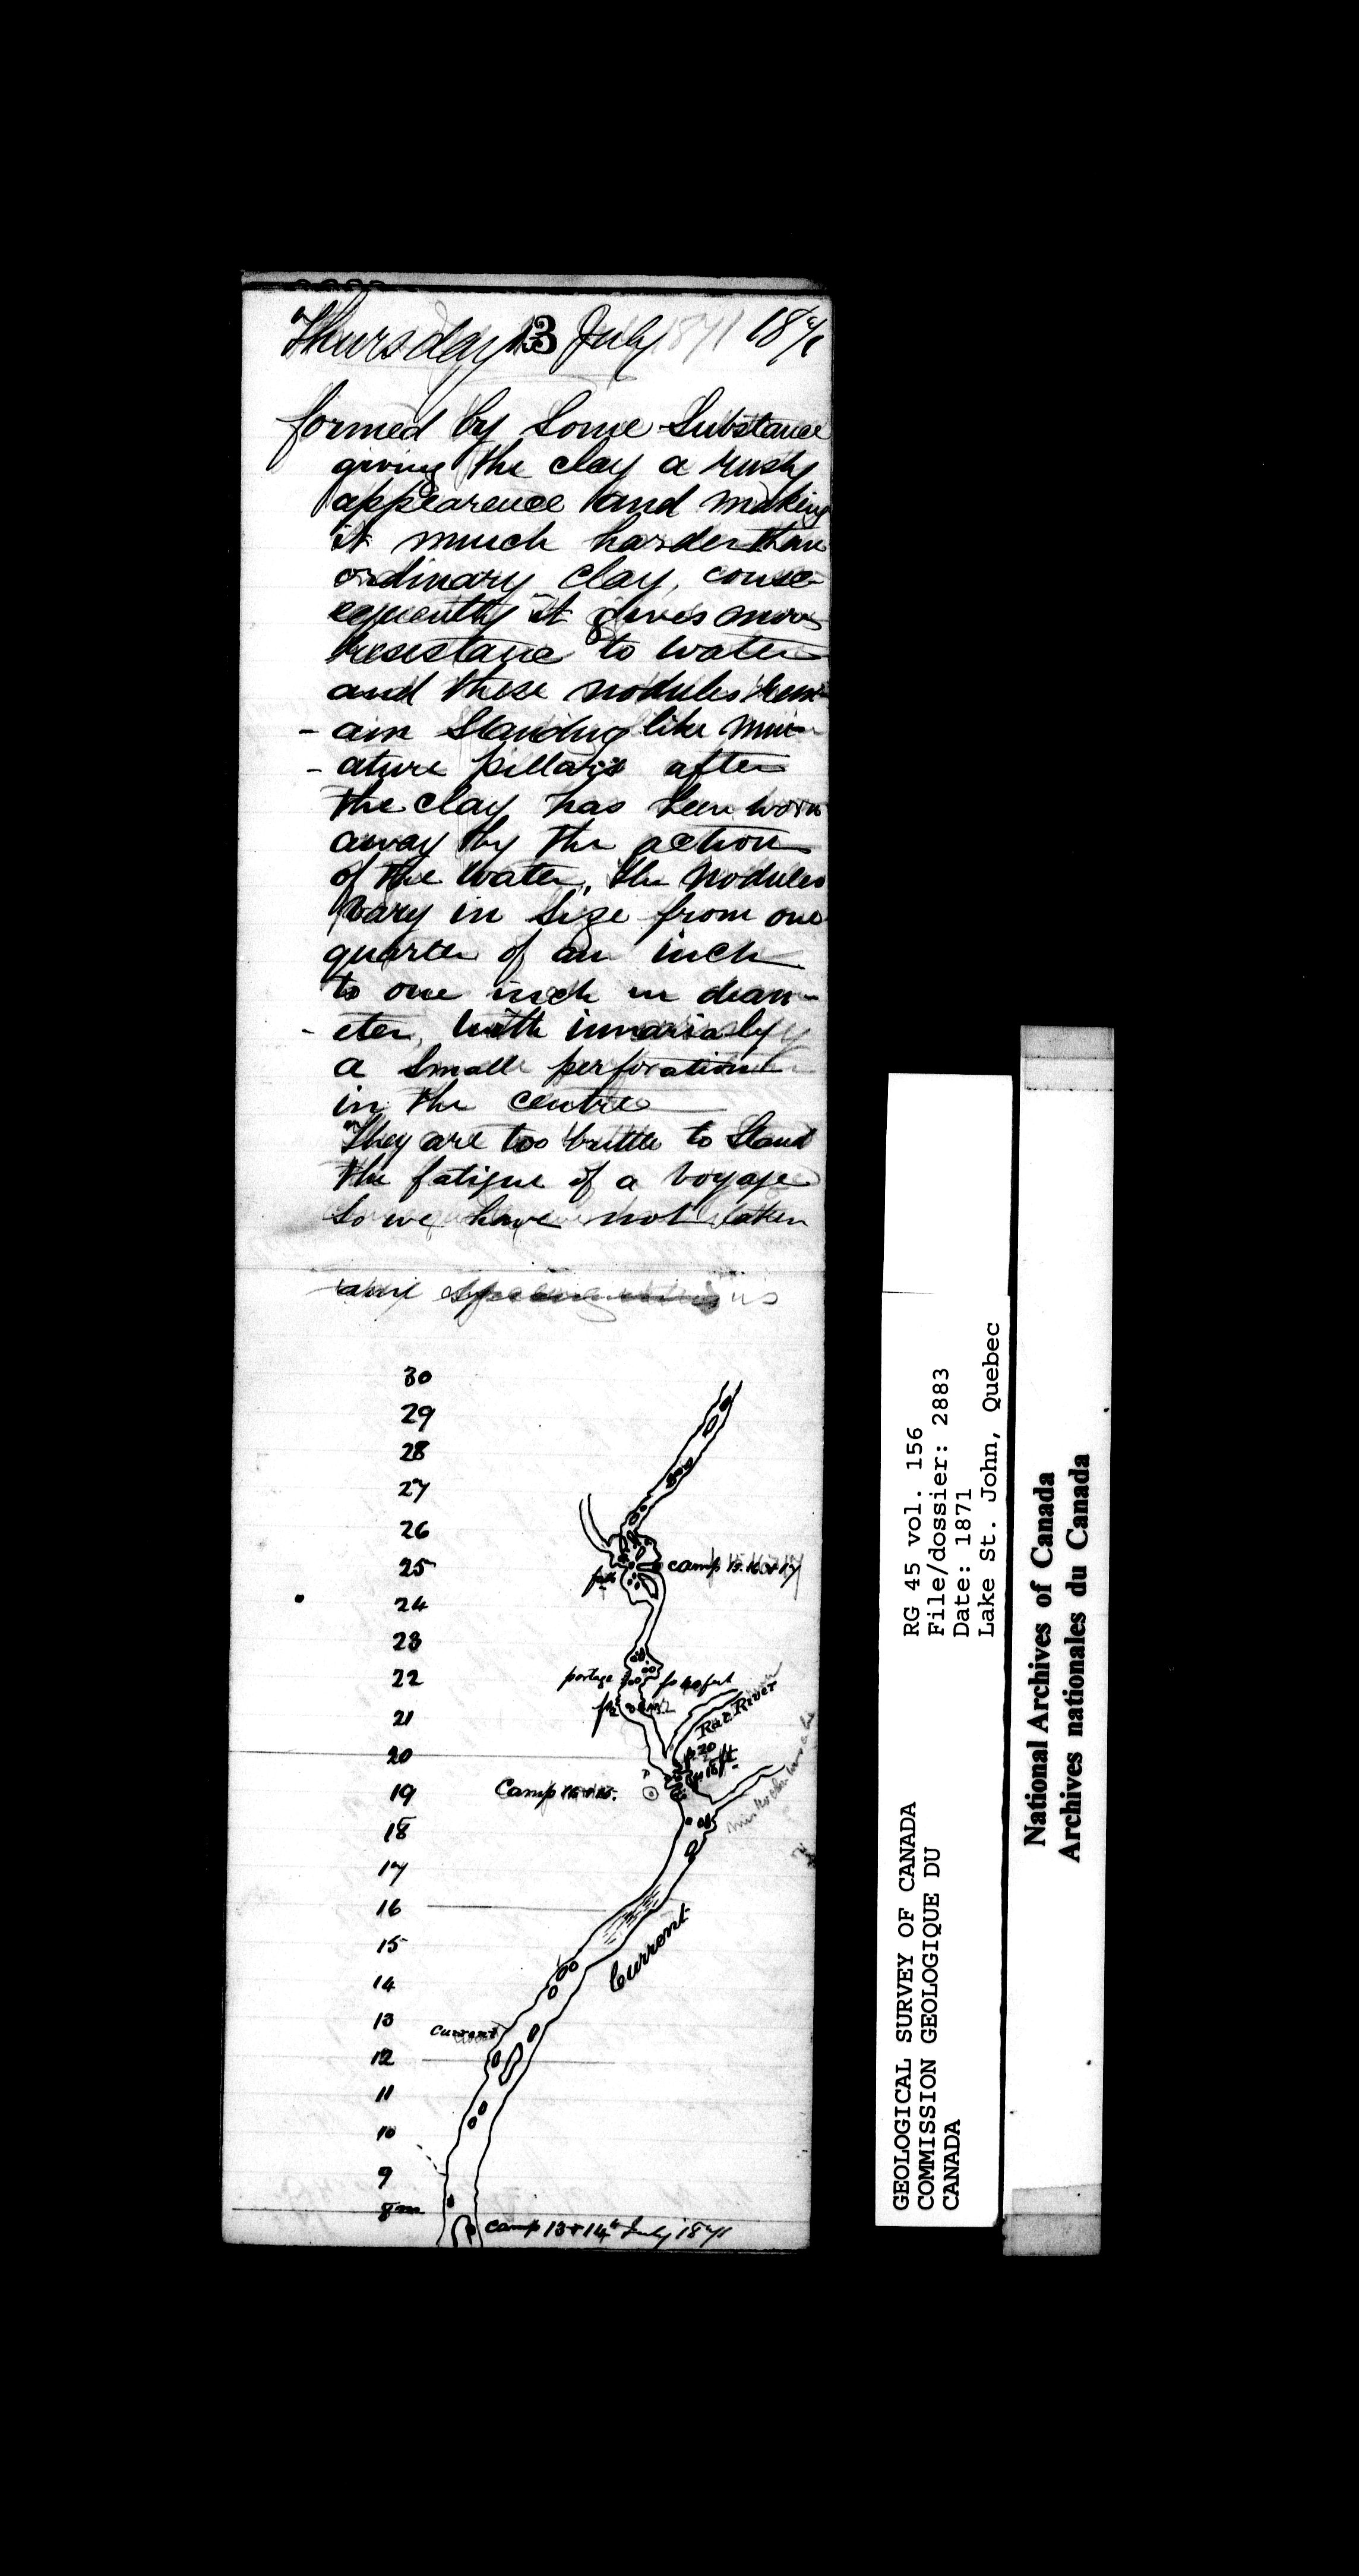 Thursday 13 July 1871 1871
formed by Some Substance
giving the clay a rusty
appearence and making
it much harder than
ordinary clay, conse-
equently it gives more
resistance to water
and these nodules rem-
- ain Standing like min-
- ature pillars after
the clay has been worn
away by the action
of the water, the nodules
vary in Size from one
quarter of an inch
to one inch in diam-
- eter, with invariably
a Small perforation
in the centre
They are too brittle to Stand
the fatigue of a voyage
So we have not taken
30
29
28
27
26
25 Camp 15. 16 + 17
24
23
22 portage
21
Rat River
20 p 20
18 ft.
19 Camp
18
17
16
15 Current
14
13 Current
12
11
10
9
8m
Camp 13 + 14th July 1871
GEOLOGICAL SURVEY OF CANADA
COMMISSION GEOLOGIQUE DU
CANADA
RG 45 vol. 156
File/dossier: 2883
Date: 1871
Lake St. John, Quebec
National Archives of Canada
Archives nationales du Canada